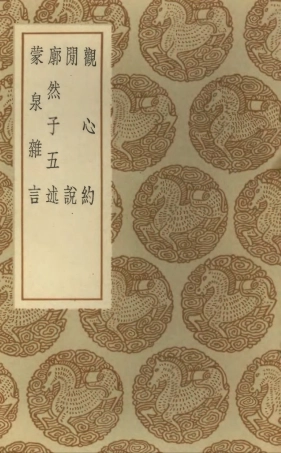 觀心約
閒說
廓然子五述
蒙泉雜言